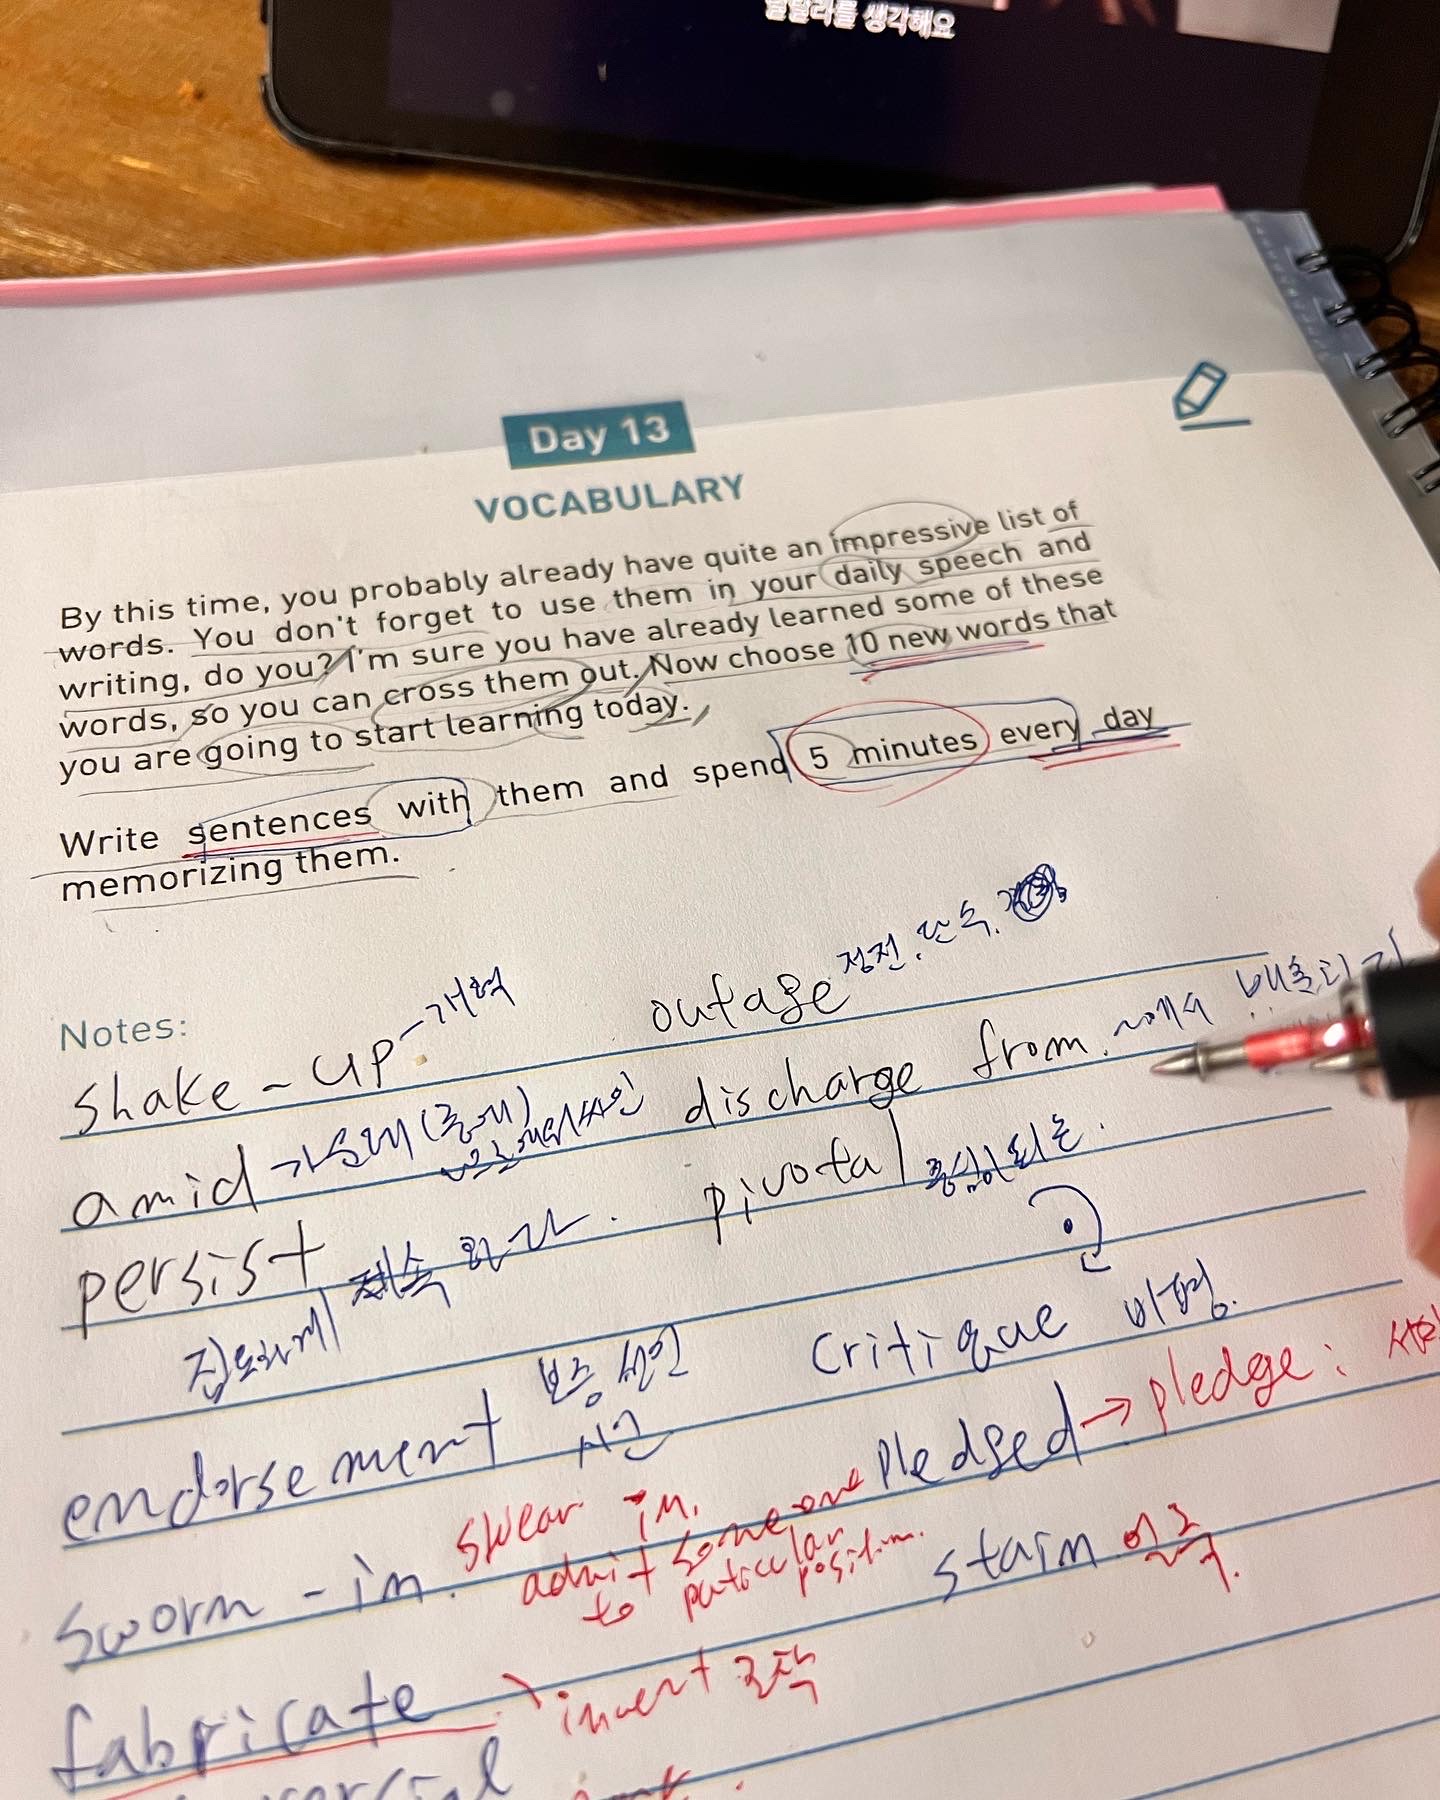 생각해요
Day 13
VOCABULARY
By this time, you probably already have quite an impressive list of
words. You don't forget to use them in your daily speech and
writing, do you? I'm sure you have already learned some of these
words, so you can cross them out. Now choose 10 new words that
you are going to start learning today.
Write sentences with them and spend 5 minutes every day
memorizing them.
Notes:
shake-up - 개혁
outage 정전. 단수.
amid 가운데(중에)
discharge from. ~에서
persist 계속 하다.
pivotal 중심이 되는.
집요하게
endorsement 보증 승인
시간
critique 비평.
sworn-in. swear in.
admit someone
to particular
position.
Pledged → pledge:
stain 얼룩.
fabricate invent 조작